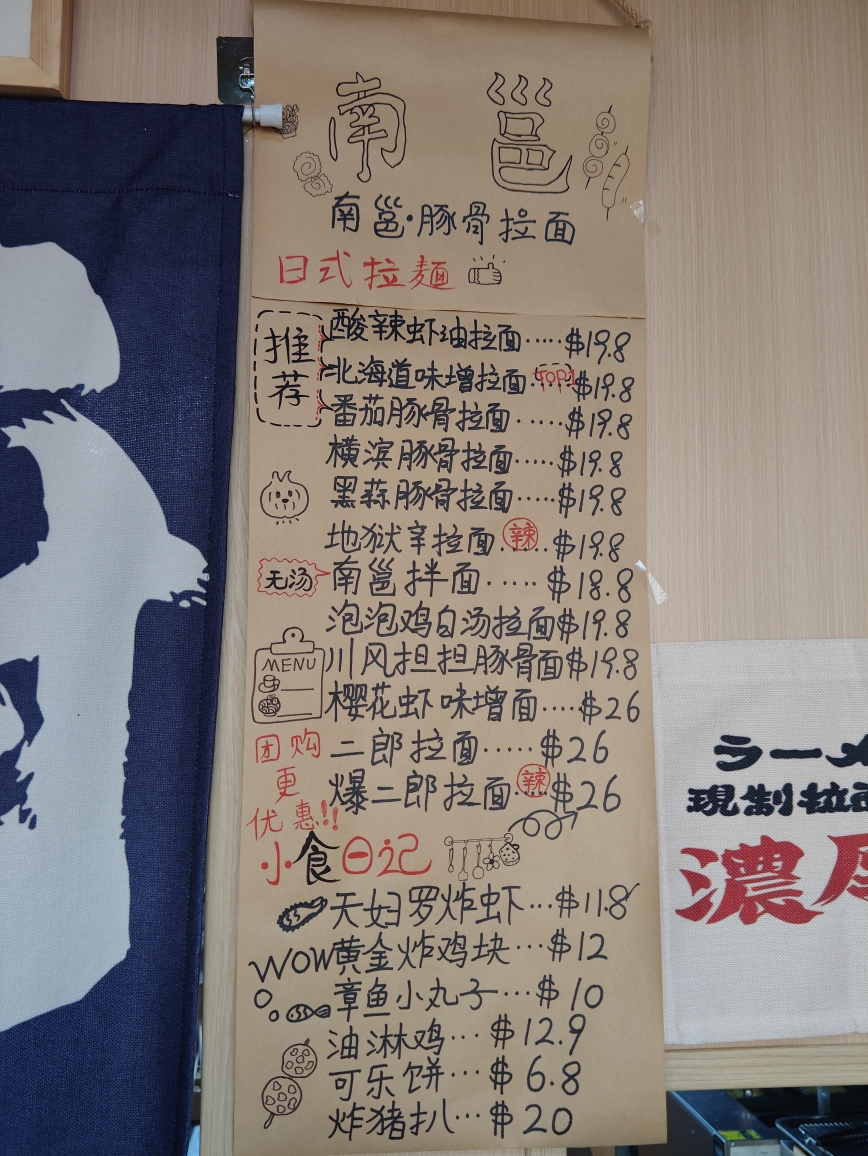 南邕
南邕·豚骨拉面
日式拉麺
推荐
酸辣虾油拉面·····$19.8
北海道味增拉面·····TOP1$19.8
番茄豚骨拉面·····$19.8
横滨豚骨拉面·····$19.8
黑蒜豚骨拉面·····$19.8
地狱辛拉面·····辣$19.8
无汤
南邕拌面·····$18.8
泡泡鸡白汤拉面$19.8
MENU
川风担担豚骨面$19.8
樱花虾味增面····$26
团购
更
优惠!!
二郎拉面·····$26
爆二郎拉面····辣$26
小食日记
天妇罗炸虾···$11.8
WOW
黄金炸鸡块···$12
章鱼小丸子···$10
油淋鸡···$12.9
可乐饼···$6.8
炸猪扒···$20
ラー
現制拉
濃